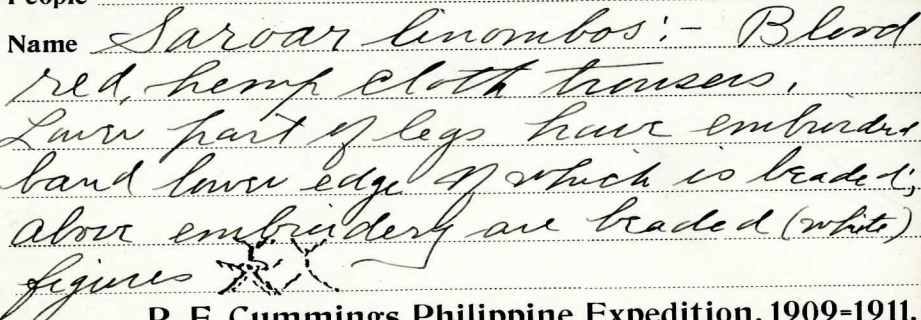 People
Name Saroar linombos:- Blood
red, hemp cloth trousers.
Lower part of legs have embroidered
band lower edge of which is beaded;
above embroidery are beaded (white)
figures
R. F. Cummings Philippine Expedition, 1909-1911.